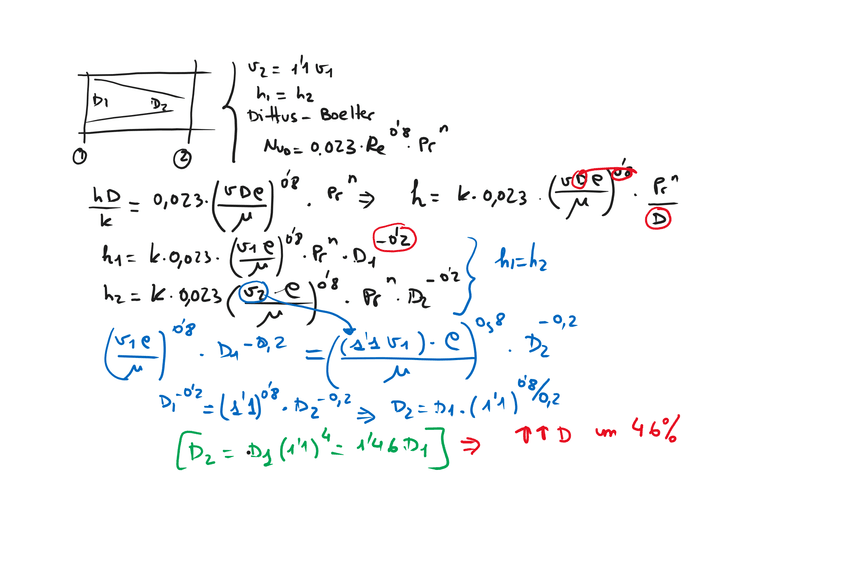 D₁ D₂
① ②
v₂ = 1'1 v₁
h₁ = h₂
Dittus - Boelter
Nu_D = 0,023 · Re^0'8 · Pr^n
hD/k = 0,023 · (vDρ/μ)^0'8 · Pr^n ⇒ h = k · 0,023 · (vDρ/μ)^0'8 · Pr^n/D
h₁ = k · 0,023 · (v₁ρ/μ)^0'8 · Pr^n · D₁^-0'2
h₂ = k · 0,023 (v₂ · ρ/μ)^0'8 · Pr^n · D₂^-0'2
h₁=h₂
(v₁ρ/μ)^0'8 · D₁^-0,2 = ((1'1 v₁) · ρ/μ)^0,8 · D₂^-0,2
D₁^-0'2 = (1'1)^0'8 · D₂^-0,2 ⇒ D₂ = D₁ · (1'1)^0'8/0,2
[D₂ = D₁ (1'1)^4 = 1'46 D₁] ⇒ ↑↑ D un 46%